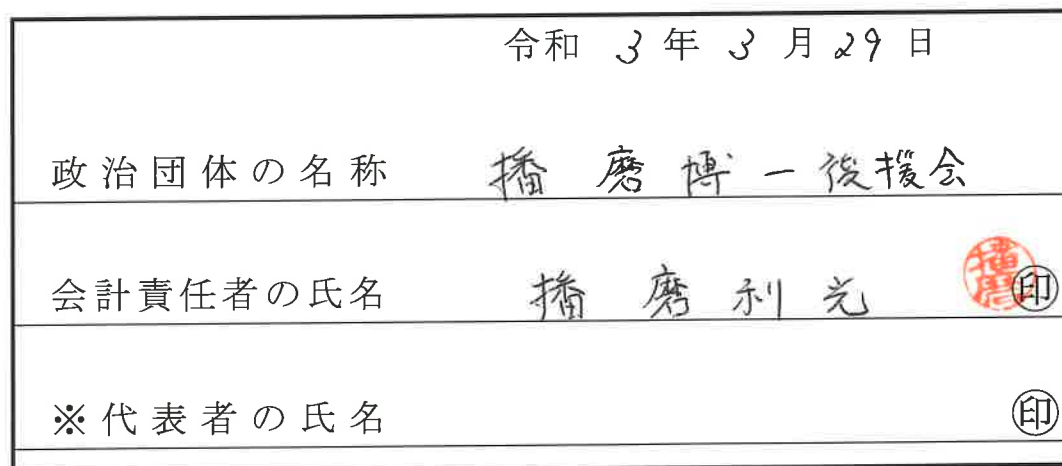 令和 3 年 3 月 29 日
政治団体の名称 播磨博一後援会
会計責任者の氏名 播磨利光 播磨 ㊞
※代表者の氏名 ㊞